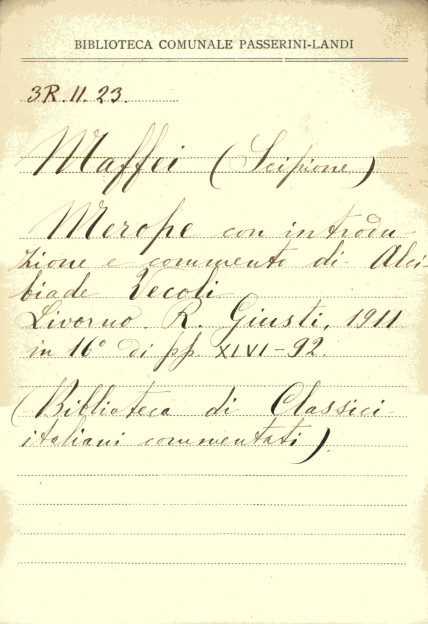 BIBLIOTECA COMUNALE PASSERINI-LANDI
3R.II.23.
Maffei (Scipione)
Merope con introdu
zione e commento di Alci
biade Vecoli
Livorno. R. Giusti, 1911
in 16° di pp. XLVI-92.
(Biblioteca di Classici
italiani commentati).